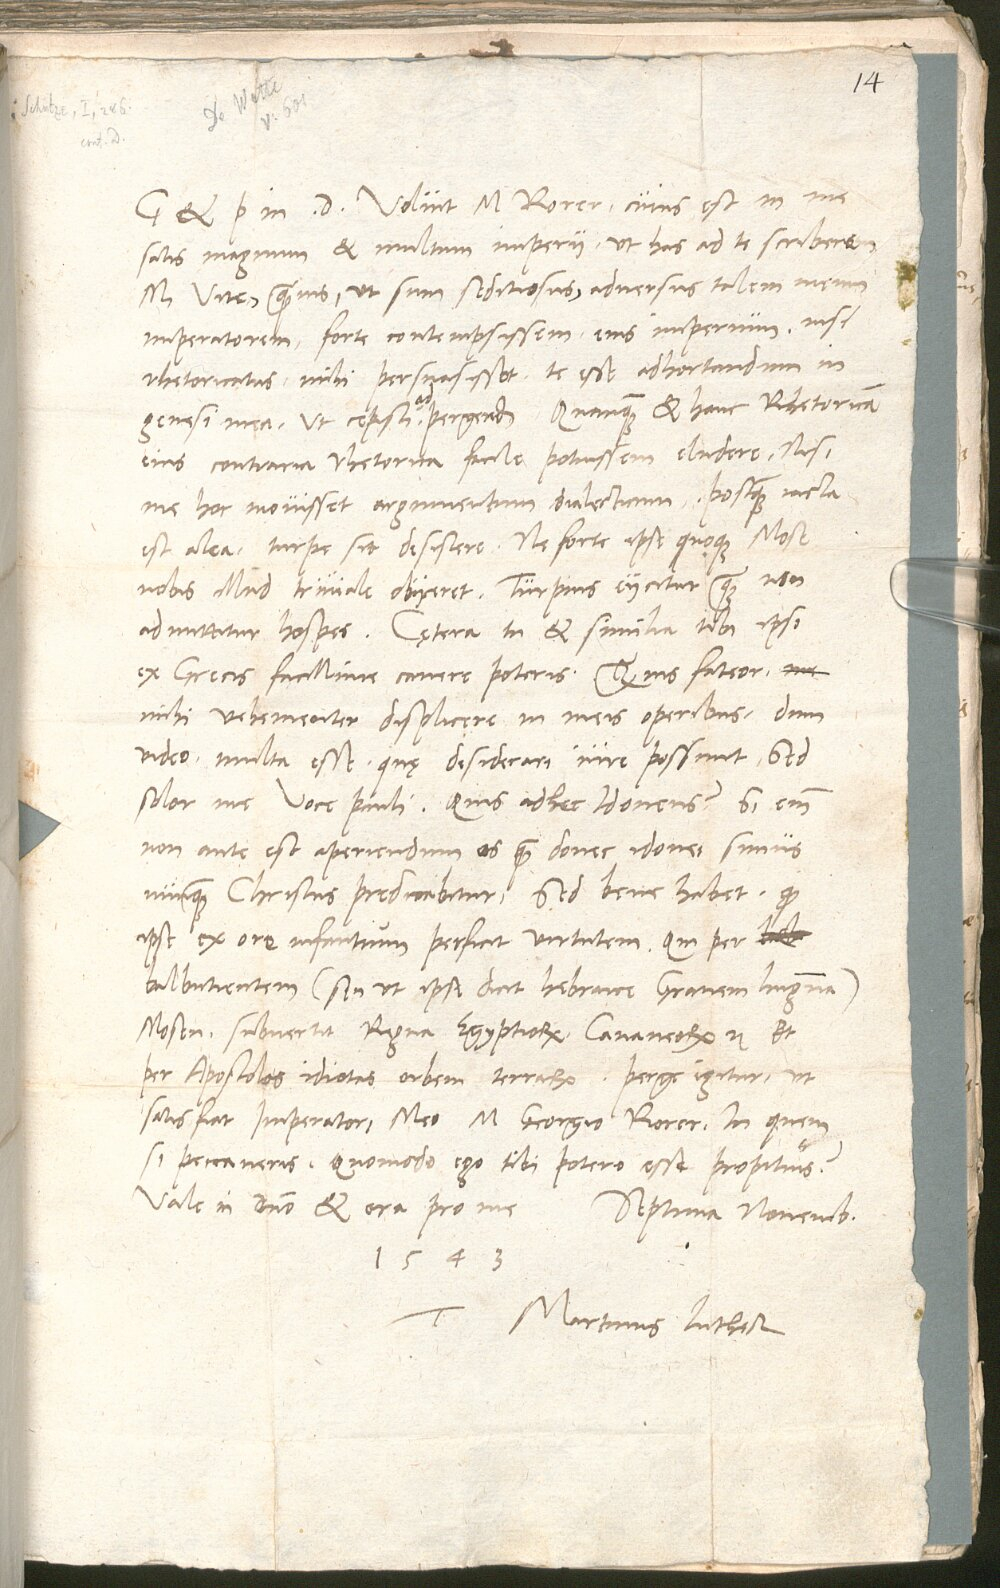 14
Schütze, I, 286.
De Wette
V. 601
G & p in .D. Voluit M Rorer, cuius est in me
satis magnum & multum imperij, ut has ad te scriberem
M. Vite, quamvis, ut sum seditiosus, adversus talem meum
imperatorem, forte contempsissem eius imperium, nisi
rhetoricatus mihi persuasisset, te esse adhortandum in
genesi mea, ut cepisti ad pergendum Quanquam & hanc Rhetoricam
eius contraria rhetorica facile potuissem eludere, Nisi
me hoc movisset argumentum dialecticum, postquam iacta
est alea, turpe sit desistere. Ne forte ipse quoque Mose
nobis illud triviale obijceret. Turpius eijcitur quam non
admittitur hospes. Cętera tu & similia tibi ipsi
ex Grecis facillime cavere poteris. Quamvis fateor, me
mihi vehementer displicere in meis operibus, dum
video multa esse, quę desiderari iure possunt, Sed
solor me Voce pauli. Quis ad hec Idoneus? Si enim
non ante est aperiendum os quam donec idonei simus
nunquam Christus predicabitur, Sed bene habet, quod
ipse ex ore infantium perficit virtutem. Qui per
balbutientem (seu ut ipse dicit hebraice Gravem lingua)
Mosen, subvertit Regna Egyptiorum Cananeorum etc Et
per Apostolos idiotas orbem terrarum. perge igitur, ut
satisfiat Imperatori Meo M Georgio Rorer. In quem
si peccaveris, Quomodo ego tibi potero esse propitius?
Vale in Dno & ora pro me Septima Novemb.
1543
T Martinus Luther